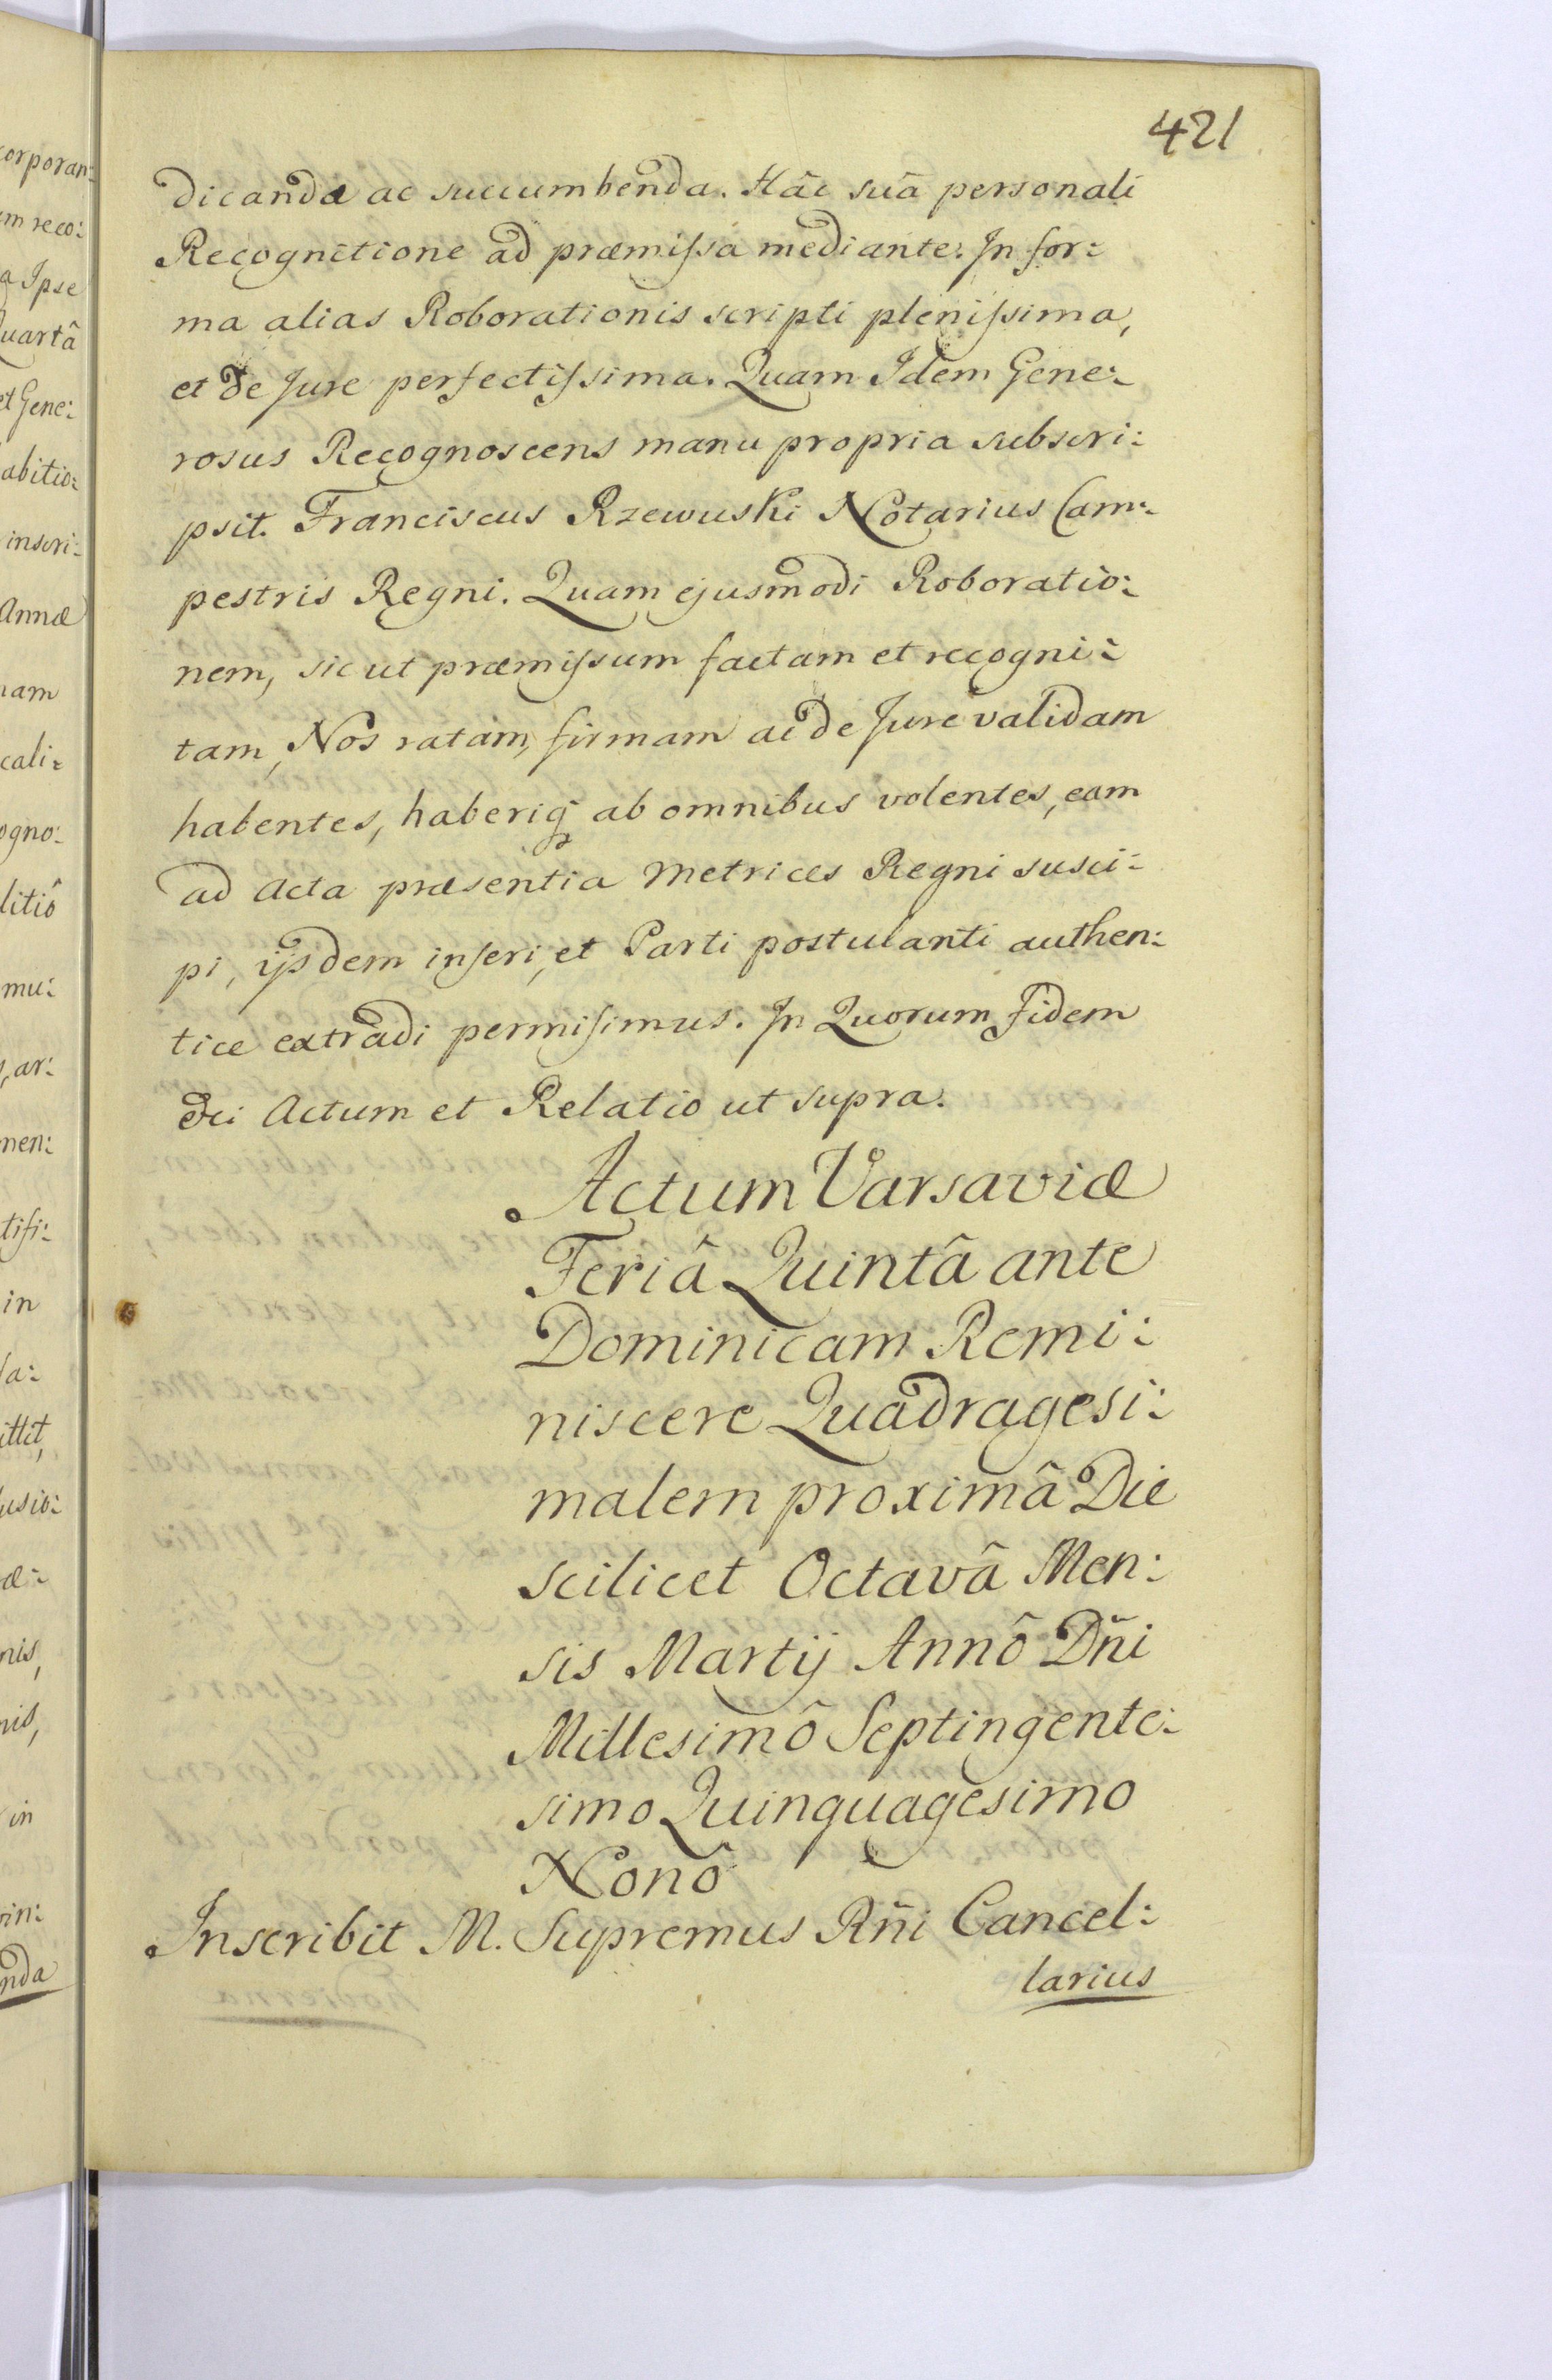 421
dicanda ac succumbenda. Hâc suâ personali
Recognitione ad præmissa mediante. In for:
ma alias Roborationis scripti plenissima,
et de Jure perfectissima. Quam Idem Gene:
rosus Recognoscens manu propria subscri:
psit. Franciscus Rzewuski Notarius Cam:
pestris Regni. Quam ejusmodi Roboratio:
nem, sicut præmissum factam et recogni:
tam, Nos ratam, firmam ac de Jure validam
habentes, haberiq̃ ab omnibus volentes, eam
ad Acta præsentia Metrices Regni susci:
pi, ijsdem inseri, et Parti postulanti authen:
tice extradi permisimus. In Quorum Fidem
&ci Actum et Relatio ut supra.
Actum Varsaviæ
Feriâ Quintâ ante
Dominicam Remi:
niscere Quadragesi:
malem proximâ Die
scilicet Octavâ Men:
sis Martij Annô Dñi
Millesimô Septingente:
simo Quinquagesimo
Nonô
Inscribit M. Supremus Rñi Cancel:
larius
corporan:
m reco:
a Ipse
Quartâ
et Gene:
abitio:
inscri:
Annæ
nam
cali:
ogno:
litiô
mu:
ar:
men:
tifi:
in
ittit,
usio:
æ:
nis,
nis,
in
nda